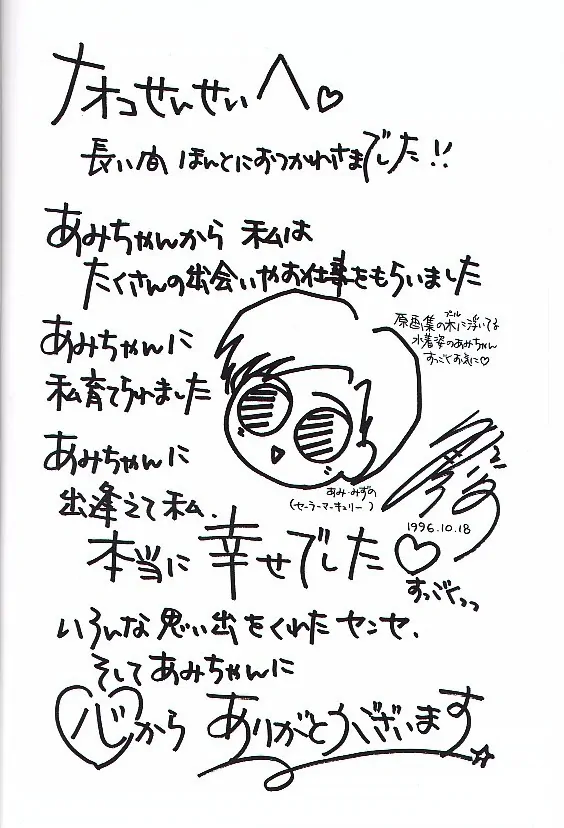 ナオコせんせいへ♡
長い間 ほんとにおつかれさまでした!!
あみちゃんから 私は
たくさんの出会いやお仕事をもらいました
あみちゃんに
私育てられました
あみちゃんに
出逢えて私、
本当に幸せでした♡
すっごくっっ
いろんな思い出をくれたセンセ、
そしてあみちゃんに
心からありがとうございます☆
原画集の水に浮いてる
プール
水着姿のあみちゃん
すっごくお気に♡
あみ・みずの
(セーラーマーキュリー)
1996.10.18